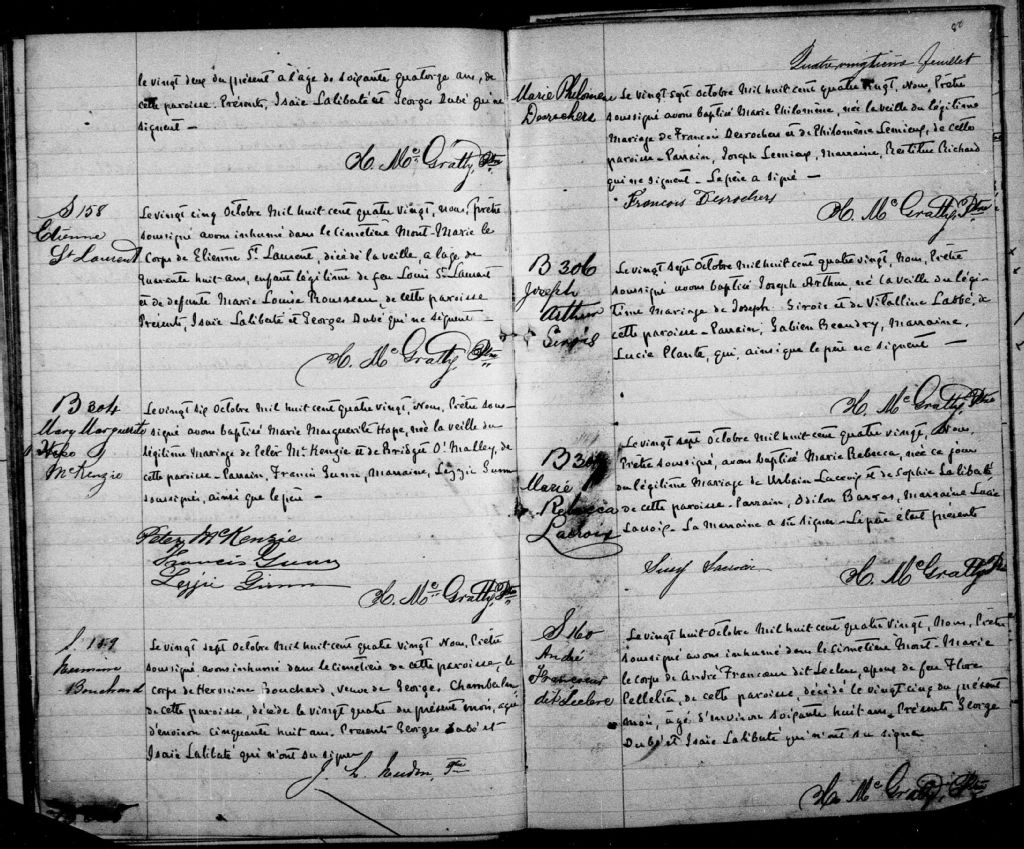 le vingt deux du présent à l'âge de soixante quatorze ans, de
cette paroisse. Présents, Isaïe Laliberté et Georges Dubé qui ne
signent —
H. Mc Gratty, Ptre
S 158
Etienne
St Laurent
Le vingt cinq Octobre Mil huit cent quatre vingt, nous, prêtre
soussigné avons inhumé dans le Cimetière Mont-Marie le
Corps de Etienne St Laurent, décédé la veille, à l'âge de
quarante huit-ans, enfant légitime de feu Louis St Laurent
et de défunte Marie Louise Rousseau, de cette paroisse
Présents, Isaïe Laliberté et Georges Dubé qui ne signent —
H. Mc Gratty, Ptre
B 304
Mary Marguerite
Hope
McKenzie
Le vingt six Octobre Mil huit cent quatre vingt, Nous, Prêtre sous-
signé avons baptisé Marie Marguerite Hope, née la veille du
légitime Mariage de Peter McKenzie et de Bridget O'Malley, de
cette paroisse - Parrain, Francis Gunn, Marraine, Lizzie Gunn
soussignés, ainsi que le père —
Peter McKenzie
Francis Gunn
Lizzie Gunn
H. Mc Gratty, Ptre
S. 159
Bouchard
Le vingt sept Octobre Mil huit cent quatre vingt Nous, Prêtre
soussigné avons inhumé dans le cimetière de cette paroisse, le
corps de Hermine Bouchard, veuve de Georges Chamberland
de cette paroisse, décédée le vingt quatre du présent mois, agée
d'environ cinquante huit ans. Présents Georges Dubé et
Isaïe Laliberté qui n'ont su signer
80
Quatre vingtième feuillet
Marie Philomène
Desrochers
Le vingt sept Octobre Mil huit cent quatre vingt, Nous, Prêtre
soussigné avons baptisé Marie Philomène, née la veille du légitime
Mariage de François Desrochers et de Philomène Lemieux, de cette
paroisse - Parrain, Joseph Lemieux, Marraine, Restitue Richard
qui ne signent - Le père a signé —
Francois Desrochers
H. Mc Gratty, Ptre
B 306
Joseph
Arthur
Le vingt sept Octobre Mil huit cent quatre vingt, Nous, Prêtre
soussigné avons baptisé Joseph Arthur, né la veille du légi-
time Mariage de Joseph Sirois et de Vitalline Labbé, de
cette paroisse - Parrain, Gabien Beaudry, Marraine,
Lucie Plante, qui, ainsi que le père ne signent —
H. Mc Gratty, Ptre
Marie
Rebecca
Lacroix
Le vingt sept Octobre Mil huit cent quatre vingt, Nous,
Prêtre soussigné, avons baptisé Marie Rebecca, née ce jour
du légitime Mariage de Urbain Lacroix et de Sophie Laliberté
de cette paroisse. Parrain, Odilon Barras, Marraine Lucie
Lacroix - La Marraine a su signer - Le père était présent
Lacroix
H. Mc Gratty Ptre
S 160
André
Francoeur
dit Leclerc
Le vingt huit Octobre Mil huit cent quatre vingt, Nous, Prêtre
soussigné avons inhumé dans le Cimetière Mont-Marie
le corps de André Francoeur dit Leclerc, époux de feu Flore
Pelletier, de cette paroisse, décédé le vingt cinq du présent
mois, agé d'environ soixante huit ans. Présents George
Dubé et Isaïe Laliberté qui n'ont su signer
H. Mc Gratty, Ptre